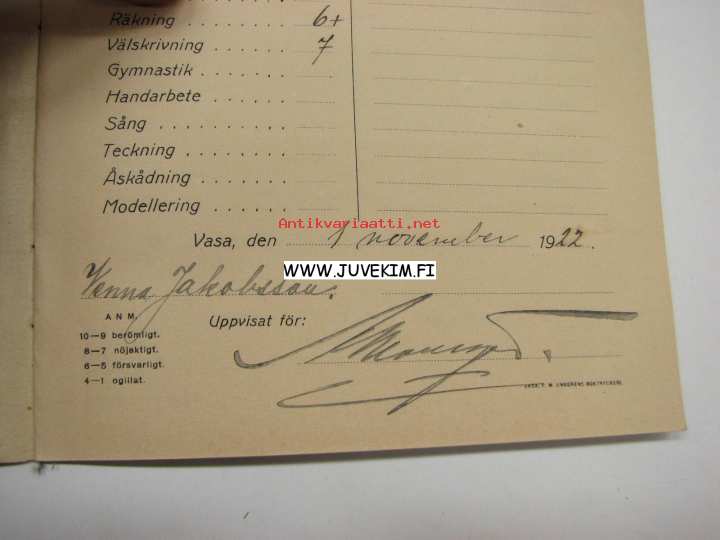 Räkning . . . . . . . . 6+
Välskrivning . . . . . 7
Gymnastik . . . . . . .
Handarbete . . . . . .
Sång . . . . . . . . .
Teckning . . . . . . .
Åskådning . . . . . . .
Modellering . . . . . .
Antikvariaatti.net
Vasa, den 1 november 1922.
WWW.JUVEKIM.FI
Jakobsson.
ANM.
Uppvisat för:
10—9 berömligt.
8—7 nöjaktigt.
6—5 försvarligt.
4—1 ogillat.